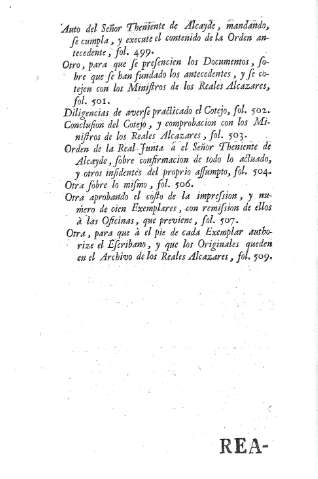 Auto del Señor Theniente de Alcayde, mandando,
se cumpla, y execute el contenido de la Orden an-
tecedente, fol. 499.
Otro, para que se presencien los Documentos, so-
bre que se han fundado los antecedentes, y se co-
tejen con los Ministros de los Reales Alcazares,
fol. 501.
Diligencias de averse practicado el Cotejo, fol. 502.
Conclusion del Cotejo, y comprobacion con los Mi-
nistros de los Reales Alcazares, fol. 503.
Orden de la Real Junta á el Señor Theniente de
Alcayde, sobre confirmacion de todo lo actuado,
y otros insidentes del proprio assumpto, fol. 504.
Otra sobre lo mismo, fol. 506.
Otra aprobando el costo de la impression, y nu-
mero de cien Exemplares, con remission de ellos
à las Oficinas, que previene, fol. 507.
Otra, para que à el pie de cada Exemplar autho-
rize el Escribano, y que los Originales queden
en el Archivo de los Reales Alcazares, fol. 509.
REA-